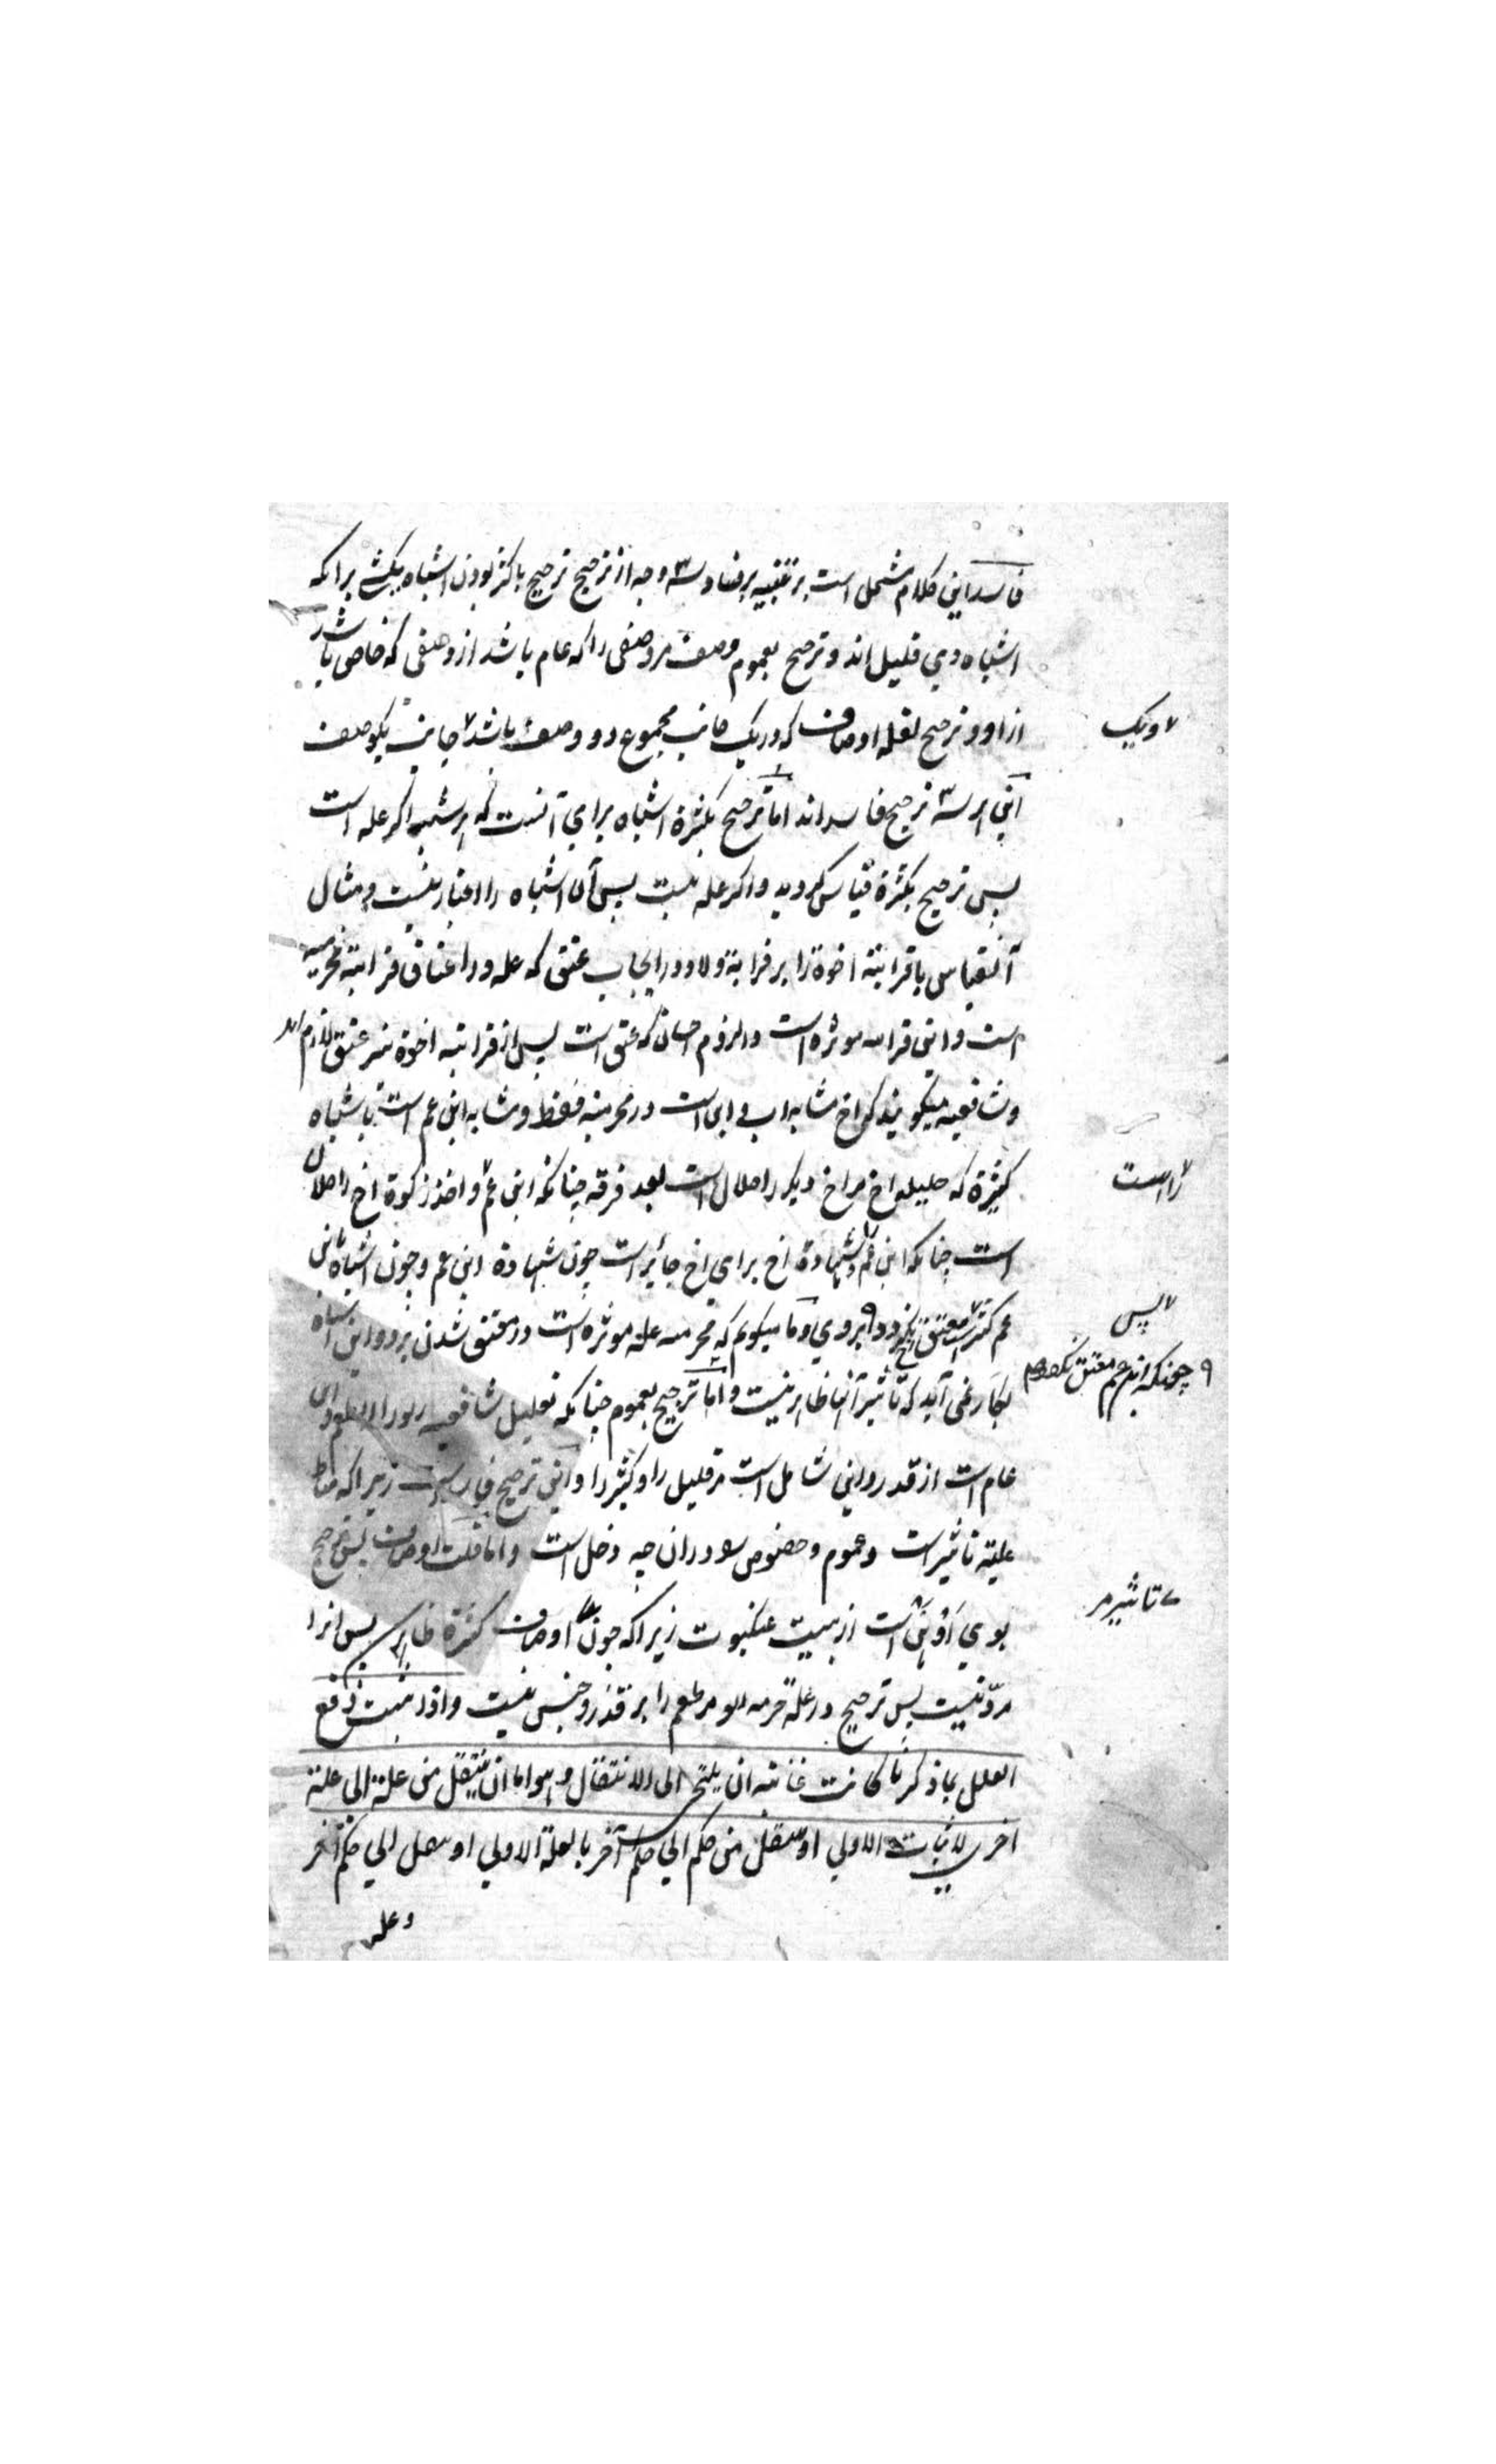 فاسد این کلام مشتمل است بر تنبیه بر فساد سه وجه از ترجیح ترجیح باکثر بودن اشباه یکشی براکه
اشباه وی قلیل اند و ترجیح بعموم وصف مر وصفی را که عام باشد از وصفی که خاص باشد
از او و ترجیح لقلة اوصاف که در یک جانب مجموع دو وصف باشد جانب یکوصف
۷ ویک
این هر سه ترجیح فاسد اند اما ترجیح بکثرة اشباه برای آنست که هر شبه اگر علة است
پس ترجیح بکثرة قیاس کردید واگر علة نیست پس آن اشباه را اعتبار نیست و مثال
آنقیاس باقرابتة اخوة را بر قرابة ولا در ایجاب عتق که علة در اعتاق قرابتة محرمیه
است و این قرابة موثره است در لزوم احسان که عتق است پس از قرابتة اخوة نیز عتق لازم آید
و شافعیه میکویند که اخ مشابه اب و ابن است در محرمیة فقط و مشابه ابن عم است باشباه
کثیرة که حلیله اخ مر اخ دیکر را حلال است بعد فرقه چنانکه ابن عم و اخذ زکوة اخ را حلال
۷ راست
است چنانکه ابن عم و شهادة اخ برای اخ جائز است چون شهادة ابن عم و چون اشباه بابن
عم کثیر است معتق نکردد بر وی و ما میکویم که محرمیه علة موثره است در معتق شدن بر دو این اشباه
۷ پس
۹ چونکه ابن عم معتق نکردد
بکار نمی آید که تاثیر آنها ظاهر نیست و اما ترجیح بعموم چنانکه تعلیل شافعیه
عام است از قدر و این شامل است مر قلیل را و کثیر را و این ترجیح فاسد است زیراکه مناط
علیة تاثیر است و عموم و خصوص را در ان چه دخل است و اما قلت اوصاف پس ترجیح
بوی أوهن است از بیت عنکبوت زیراکه چون اوصاف کثرة
۷ تاثیر مر
نیست پس ترجیح در علة حرمة ربو مر طعم را بر قدر و جنس نیست واذا ثبت دفع
العلل بما ذکرنا کانت غایته ان یلتجی الی الانتقال وهو اما ان ینتقل من علة الی علة
اخری لاثبات الاولی او ینتقل من حکم الی حکم آخر بالعلة الاولی او ینتقل الی حکم آخر
وعلة